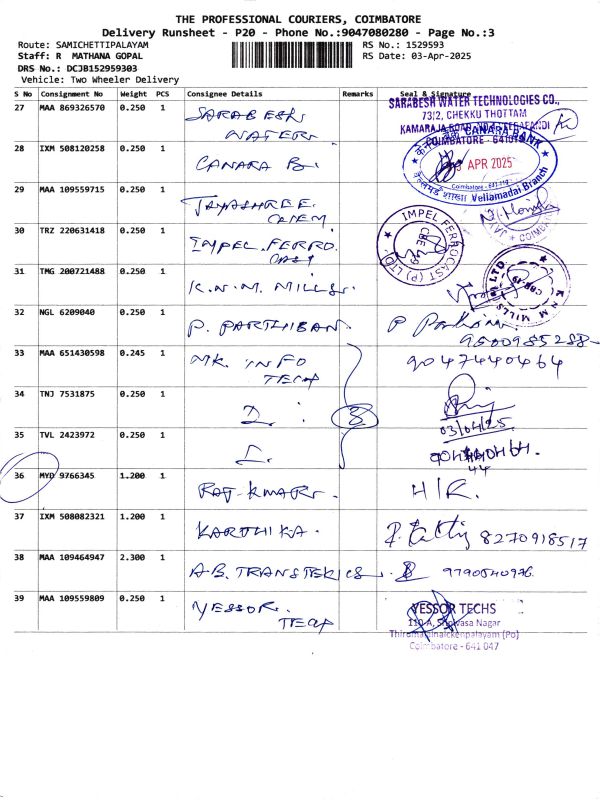 THE PROFESSIONAL COURIERS, COIMBATORE
Delivery Runsheet - P20 - Phone No.:9047080280 - Page No.:3
Route: SAMICHETTIPALAYAM
Staff: R MATHANA GOPAL
DRS No.: DCJB152959303
Vehicle: Two Wheeler Delivery
RS No.: 1529593
RS Date: 03-Apr-2025
S No Consignment No Weight PCS Consignee Details Remarks Seal & Signature
27 MAA 869326570 0.250 1 SARABESH WATER
SARABESH WATER TECHNOLOGIES CO.,
73/2, CHEKKU THOTTAM
KAMARAJA ROAD
COIMBATORE - 641015
28 IXM 508120258 0.250 1 CANARA B.
CANARA BANK
APR 2025
Vellamadai Branch
29 MAA 109559715 0.250 1 JAYASHREE CHEM
30 TRZ 220631418 0.250 1 IMPEL FERRO CAST
IMPEL FERROCAST (P) LTD.
31 TMG 200721488 0.250 1 K.N.M. MILLS.
K N M MILLS (P) LTD.
32 NGL 6209040 0.250 1 P. PARTHIBAN.
9500985288
33 MAA 651430598 0.245 1 MK INFO TECH
9047440464
34 TNJ 7531875 0.250 1 3
03/04/25
35 TVL 2423972 0.250 1
36 MYD 9766345 1.200 1 H/R.
37 IXM 508082321 1.200 1 KARTHIKA. 8270918517
38 MAA 109464947 2.300 1 9790540976
39 MAA 109559809 0.250 1 YESSOR. TECH
YESSOR TECHS
110-A, Srinivasa Nagar
Thirumalainaickenpalayam (Po)
Coimbatore - 641 047